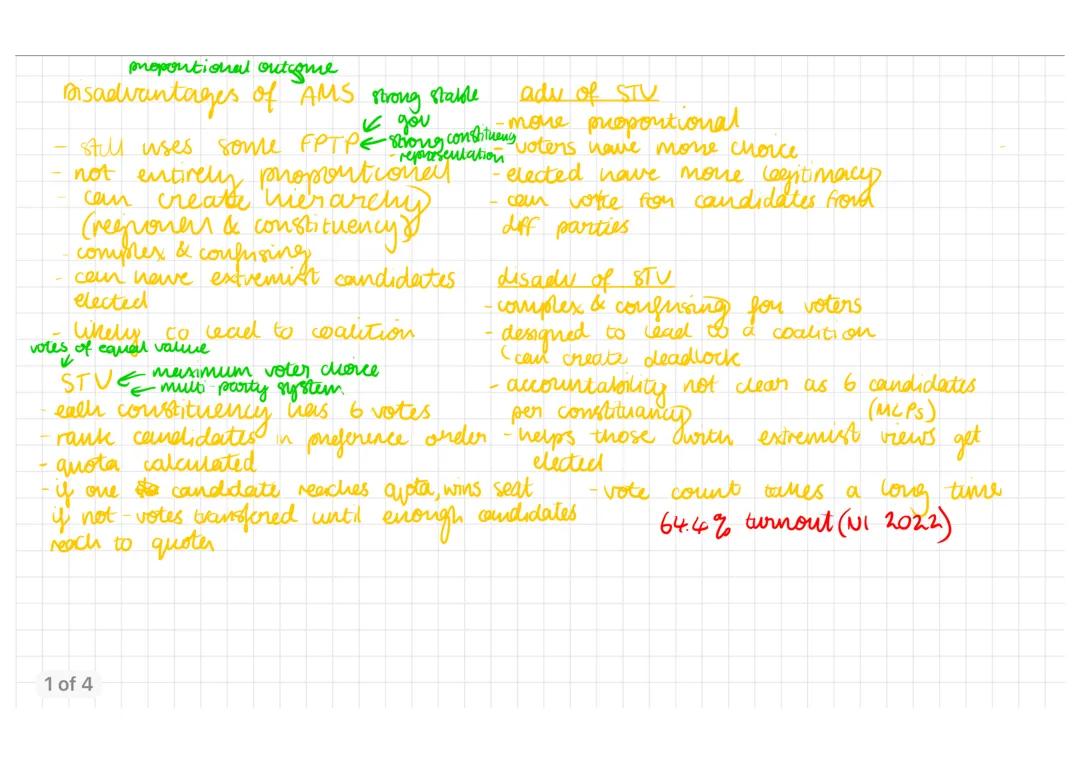 proportional outcome
Disadvantages of AMS
strong stable
gov
- still uses some FPTP
strong constituency
representation
- not entirely proportional
- can create hierarchy
(regional & constituency)
- complex & confusing
- can have extremist candidates
elected
- likely to lead to coalition
votes of equal value
STV
maximum voter choice
multi-party system
- each constituency has 6 votes
- rank candidates in preference order
- quota calculated
- if one candidate reaches quota, wins seat
if not - votes transfered until enough candidates
reach to quota
adv of STV
- more proportional
- voters have more choice
- elected have more legitimacy
- can vote for candidates from
diff parties
disadv of STV
- complex & confusing for voters
- designed to lead to a coalition
can create deadlock
- accountability not clear as 6 candidates
per constituancy (MLPs)
- helps those with extremist views get
elected
- vote count takes a long time
64.4% turnout (NI 2022)
1 of 4